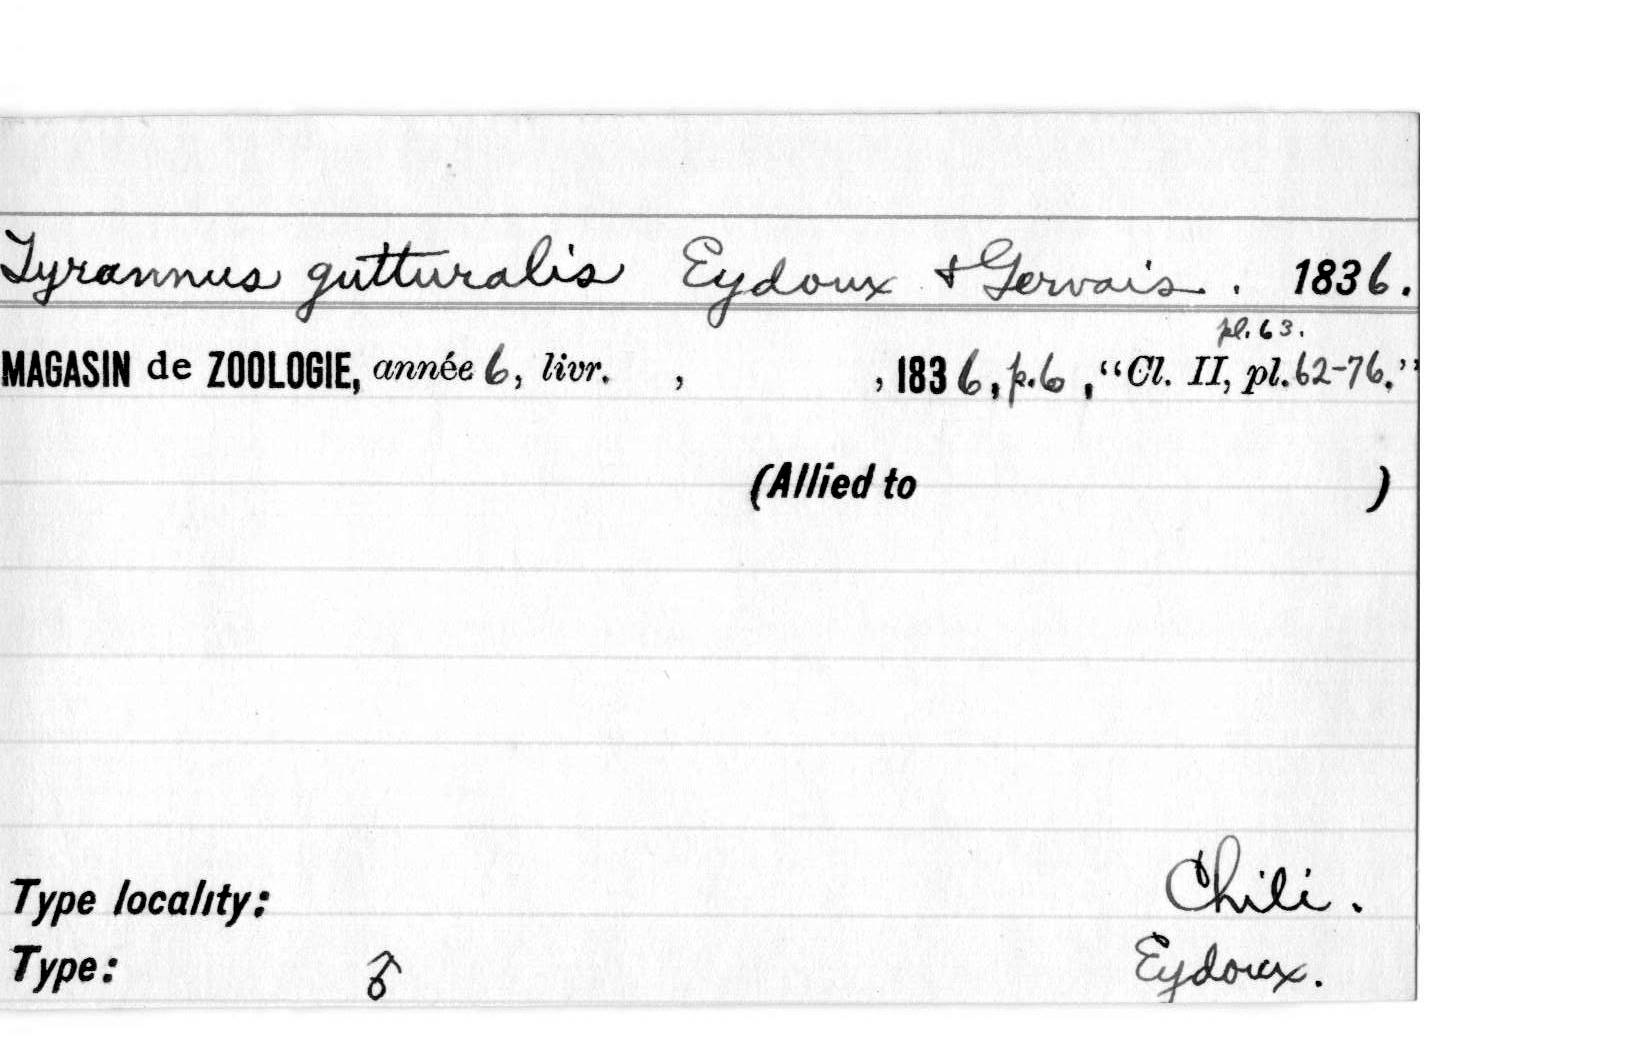 Tyrannus gutturalis Eydoux & Gervais. . 1836.
pl. 63.
MAGASIN de ZOOLOGIE, année 6, livr. , , 1836, p. 6, “Cl. II, pl. 62-76.”
(Allied to )
Type locality: Chili.
Type: ♂ Eydoux.